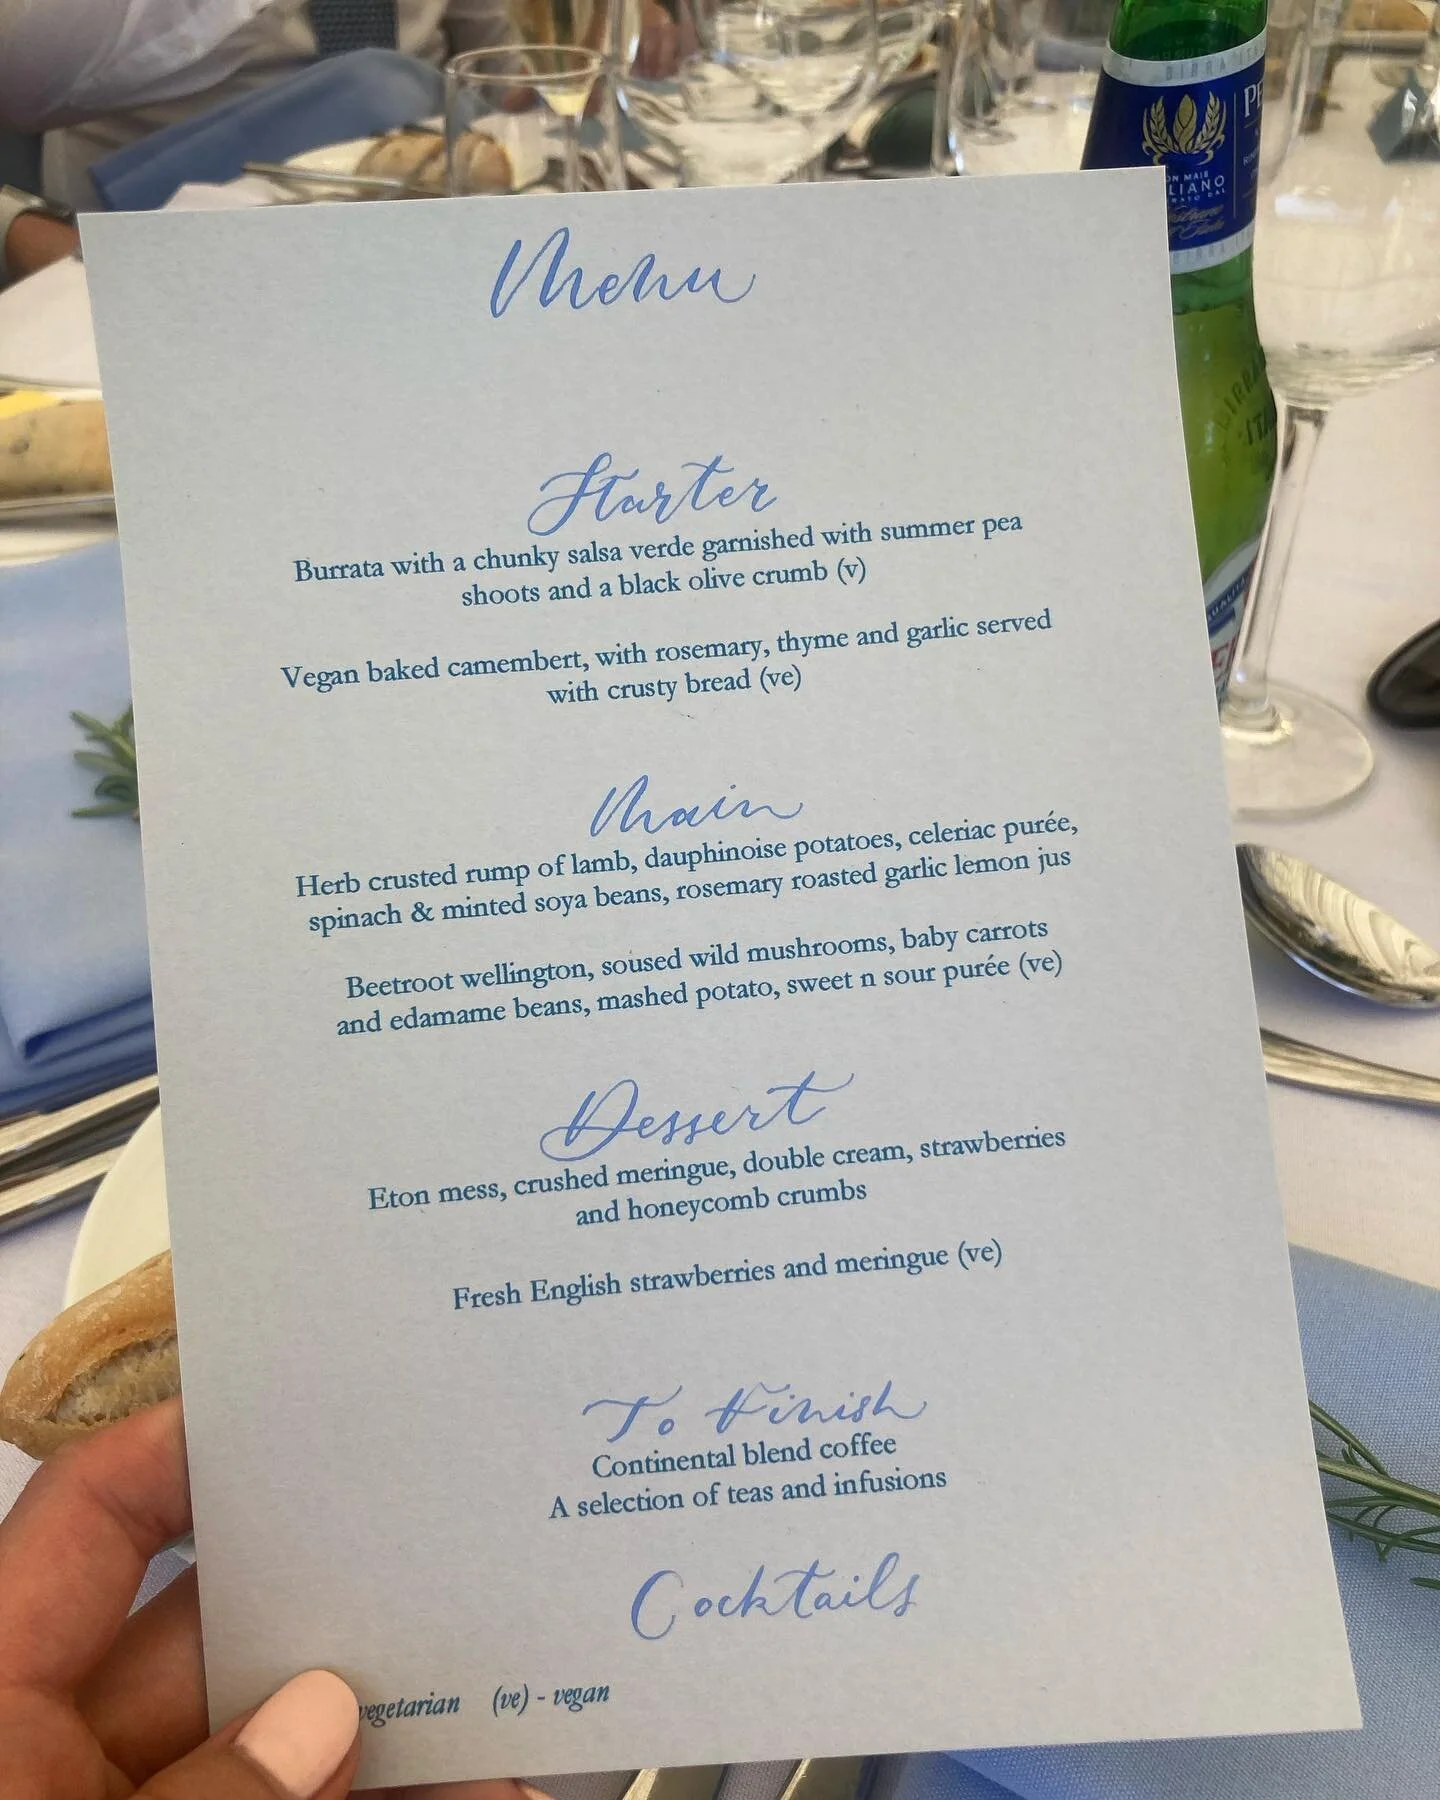 Menu
Starter
Burrata with a chunky salsa verde garnished with summer pea
shoots and a black olive crumb (v)
Vegan baked camembert, with rosemary, thyme and garlic served
with crusty bread (ve)
Main
Herb crusted rump of lamb, dauphinoise potatoes, celeriac purée,
spinach & minted soya beans, rosemary roasted garlic lemon jus
Beetroot wellington, soused wild mushrooms, baby carrots
and edamame beans, mashed potato, sweet n sour purée (ve)
Dessert
Eton mess, crushed meringue, double cream, strawberries
and honeycomb crumbs
Fresh English strawberries and meringue (ve)
To Finish
Continental blend coffee
A selection of teas and infusions
Cocktails
vegetarian (ve) - vegan
BIRRA